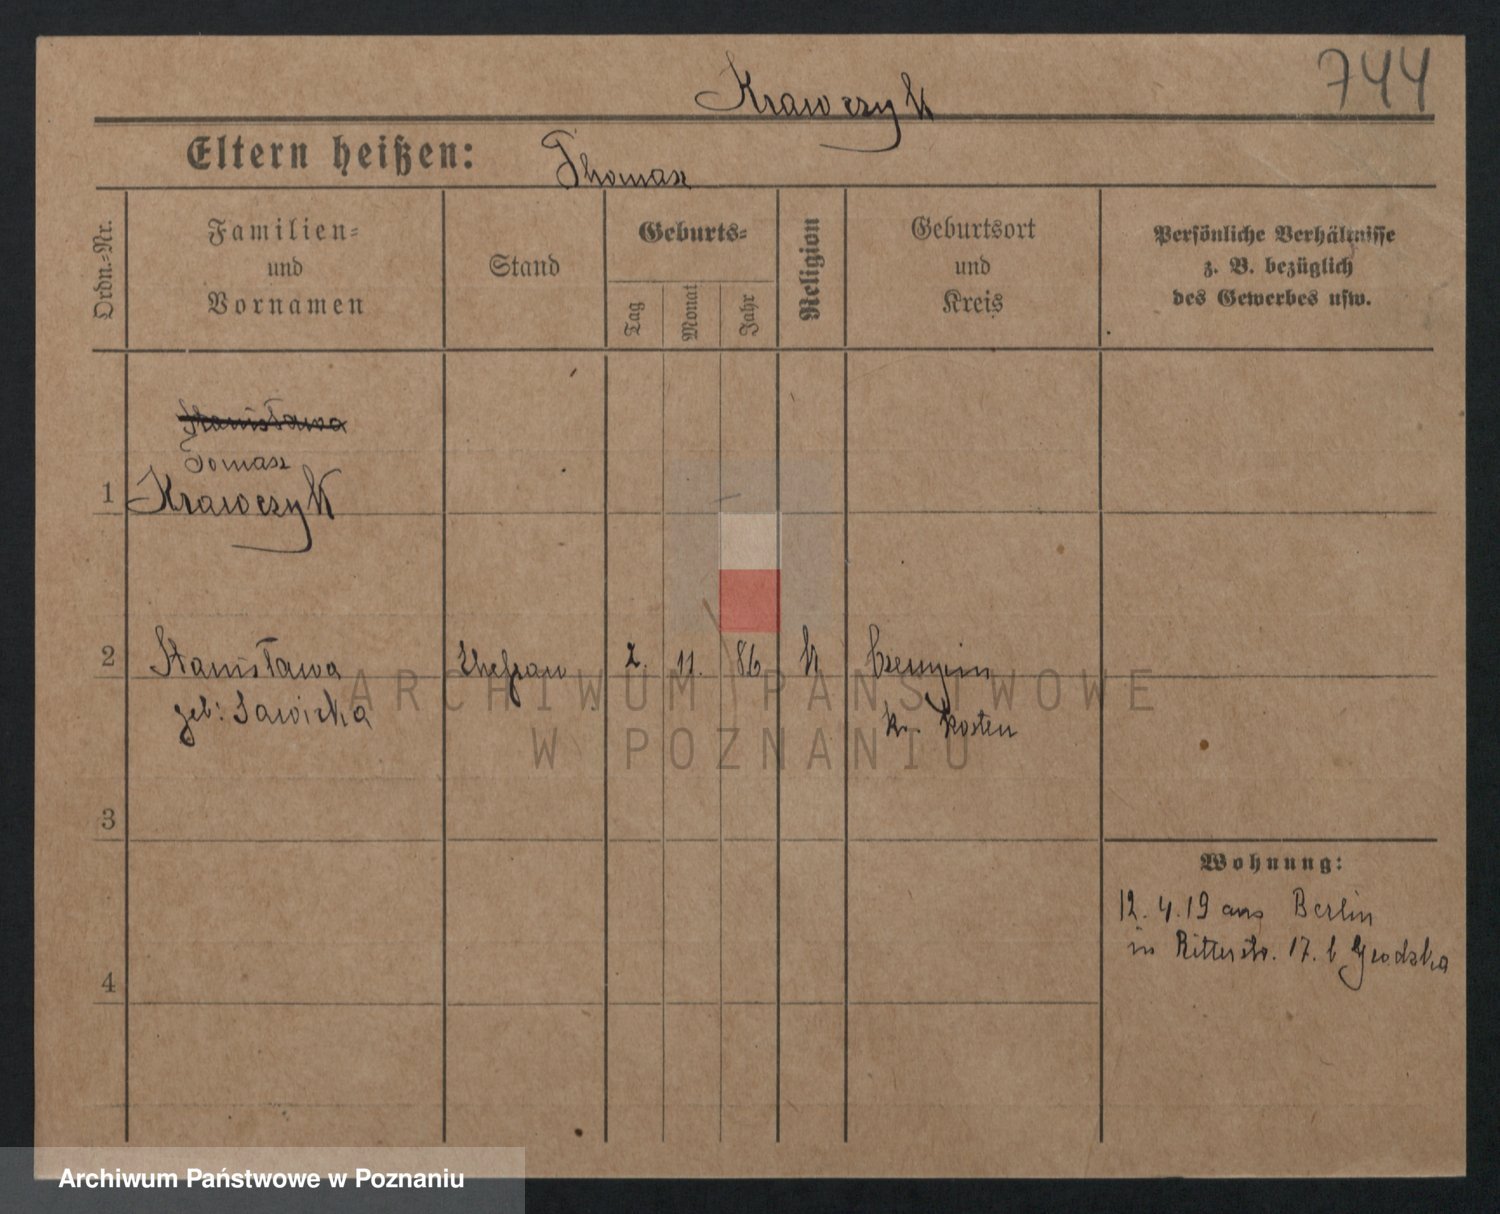 744
Krawczyk
Eltern heißen:
Thomasz
Ordn.-Nr.
Familien-
und
Vornamen
Stand
Geburts-
Tag
Monat
Jahr
Religion
Geburtsort
und
Kreis
Persönliche Verhältnisse
z. B. bezüglich
des Gewerbes usw.
Stanisława
Tomasz
1 Krawczyk
2 Stanisława Ehefrau 2. 11. 86 k Czempin
geb: Sawicka
kr. Kosten
ARCHIWUM PAŃSTWOWE
W POZNANIU
3
Wohnung:
12. 4. 19 aus Berlin
in Ritterstr. 17. b Grodzka
4
Archiwum Państwowe w Poznaniu